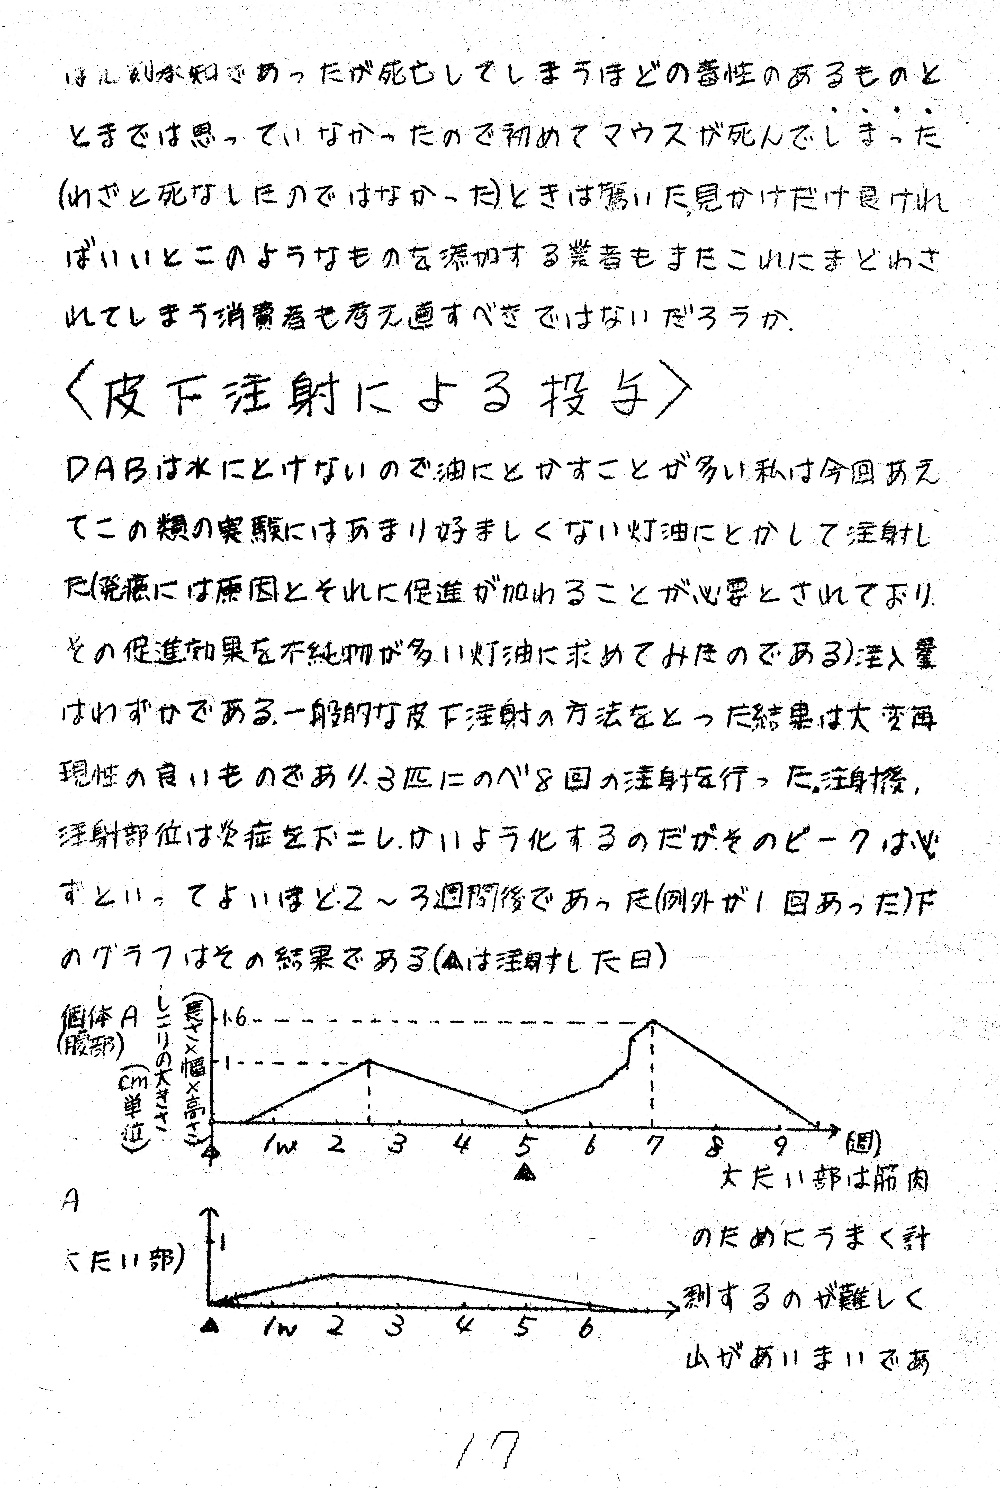 であったが死亡してしまうほどの毒性のあるものと
とまでは思っていなかったので初めてマウスが死んでしまった
(わざと死なしたのではなかった)ときは驚いた.見かけだけ良けれ
ばいいとこのようなものを添加する業者もまたこれにまどわさ
れてしまう消費者も考え直すべきではないだろうか.
〈皮下注射による投与〉
DABは水にとけないので油にとかすことが多い私は今回あえ
てこの類の実験にはあまり好ましくない灯油にとかして注射し
た(発癌には原因とそれに促進が加わることが必要とされており.
その促進効果を不純物が多い灯油に求めてみたのである)注入量
はわずかである.一般的な皮下注射の方法をとった結果は大変再
現性の良いものであり.3匹にのべ8回の注射を行った.注射後,
注射部位は炎症をおこし.かいよう化するのだが.そのピークは必
ずといってよいほど.2〜3週間後であった(例外が1回あった)下
のグラフはその結果である(▲は注射した日)
個体A
(腹部)
しこりの大きさ
(長さ×幅×高さ)
(cm単位)
1.6
1
1w 2 3 4 5 6 7 8 9 (週)
▲ ▲
A
大たい部)
1
1w 2 3 4 5 6
▲
大たい部は筋肉
のためにうまく計
測するのが難しく
山があいまいであ
17